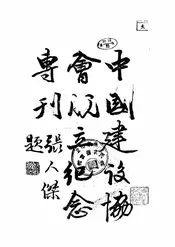 中國建設協
會成立紀念
專刊
張人傑題